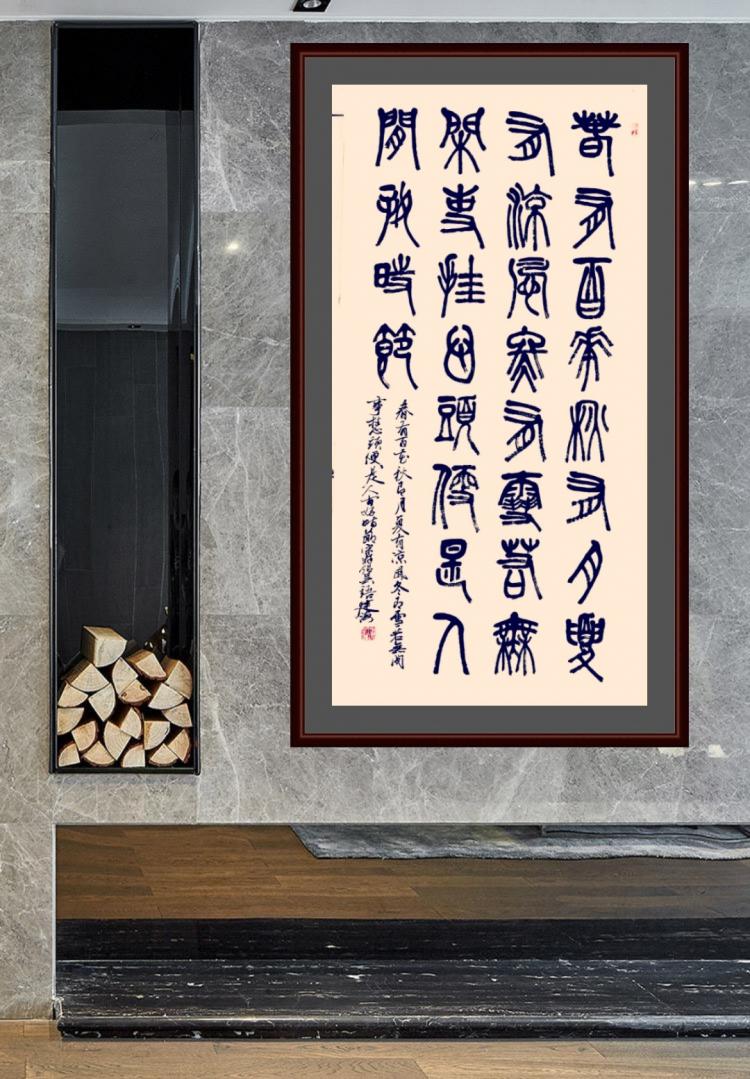 春有百花秋有月夏
有涼風冬有雪若無
閑事挂心頭便是人
間好時節
春有百花秋有月夏有凉風冬有雪若無閑
事挂心頭便是人間好時節